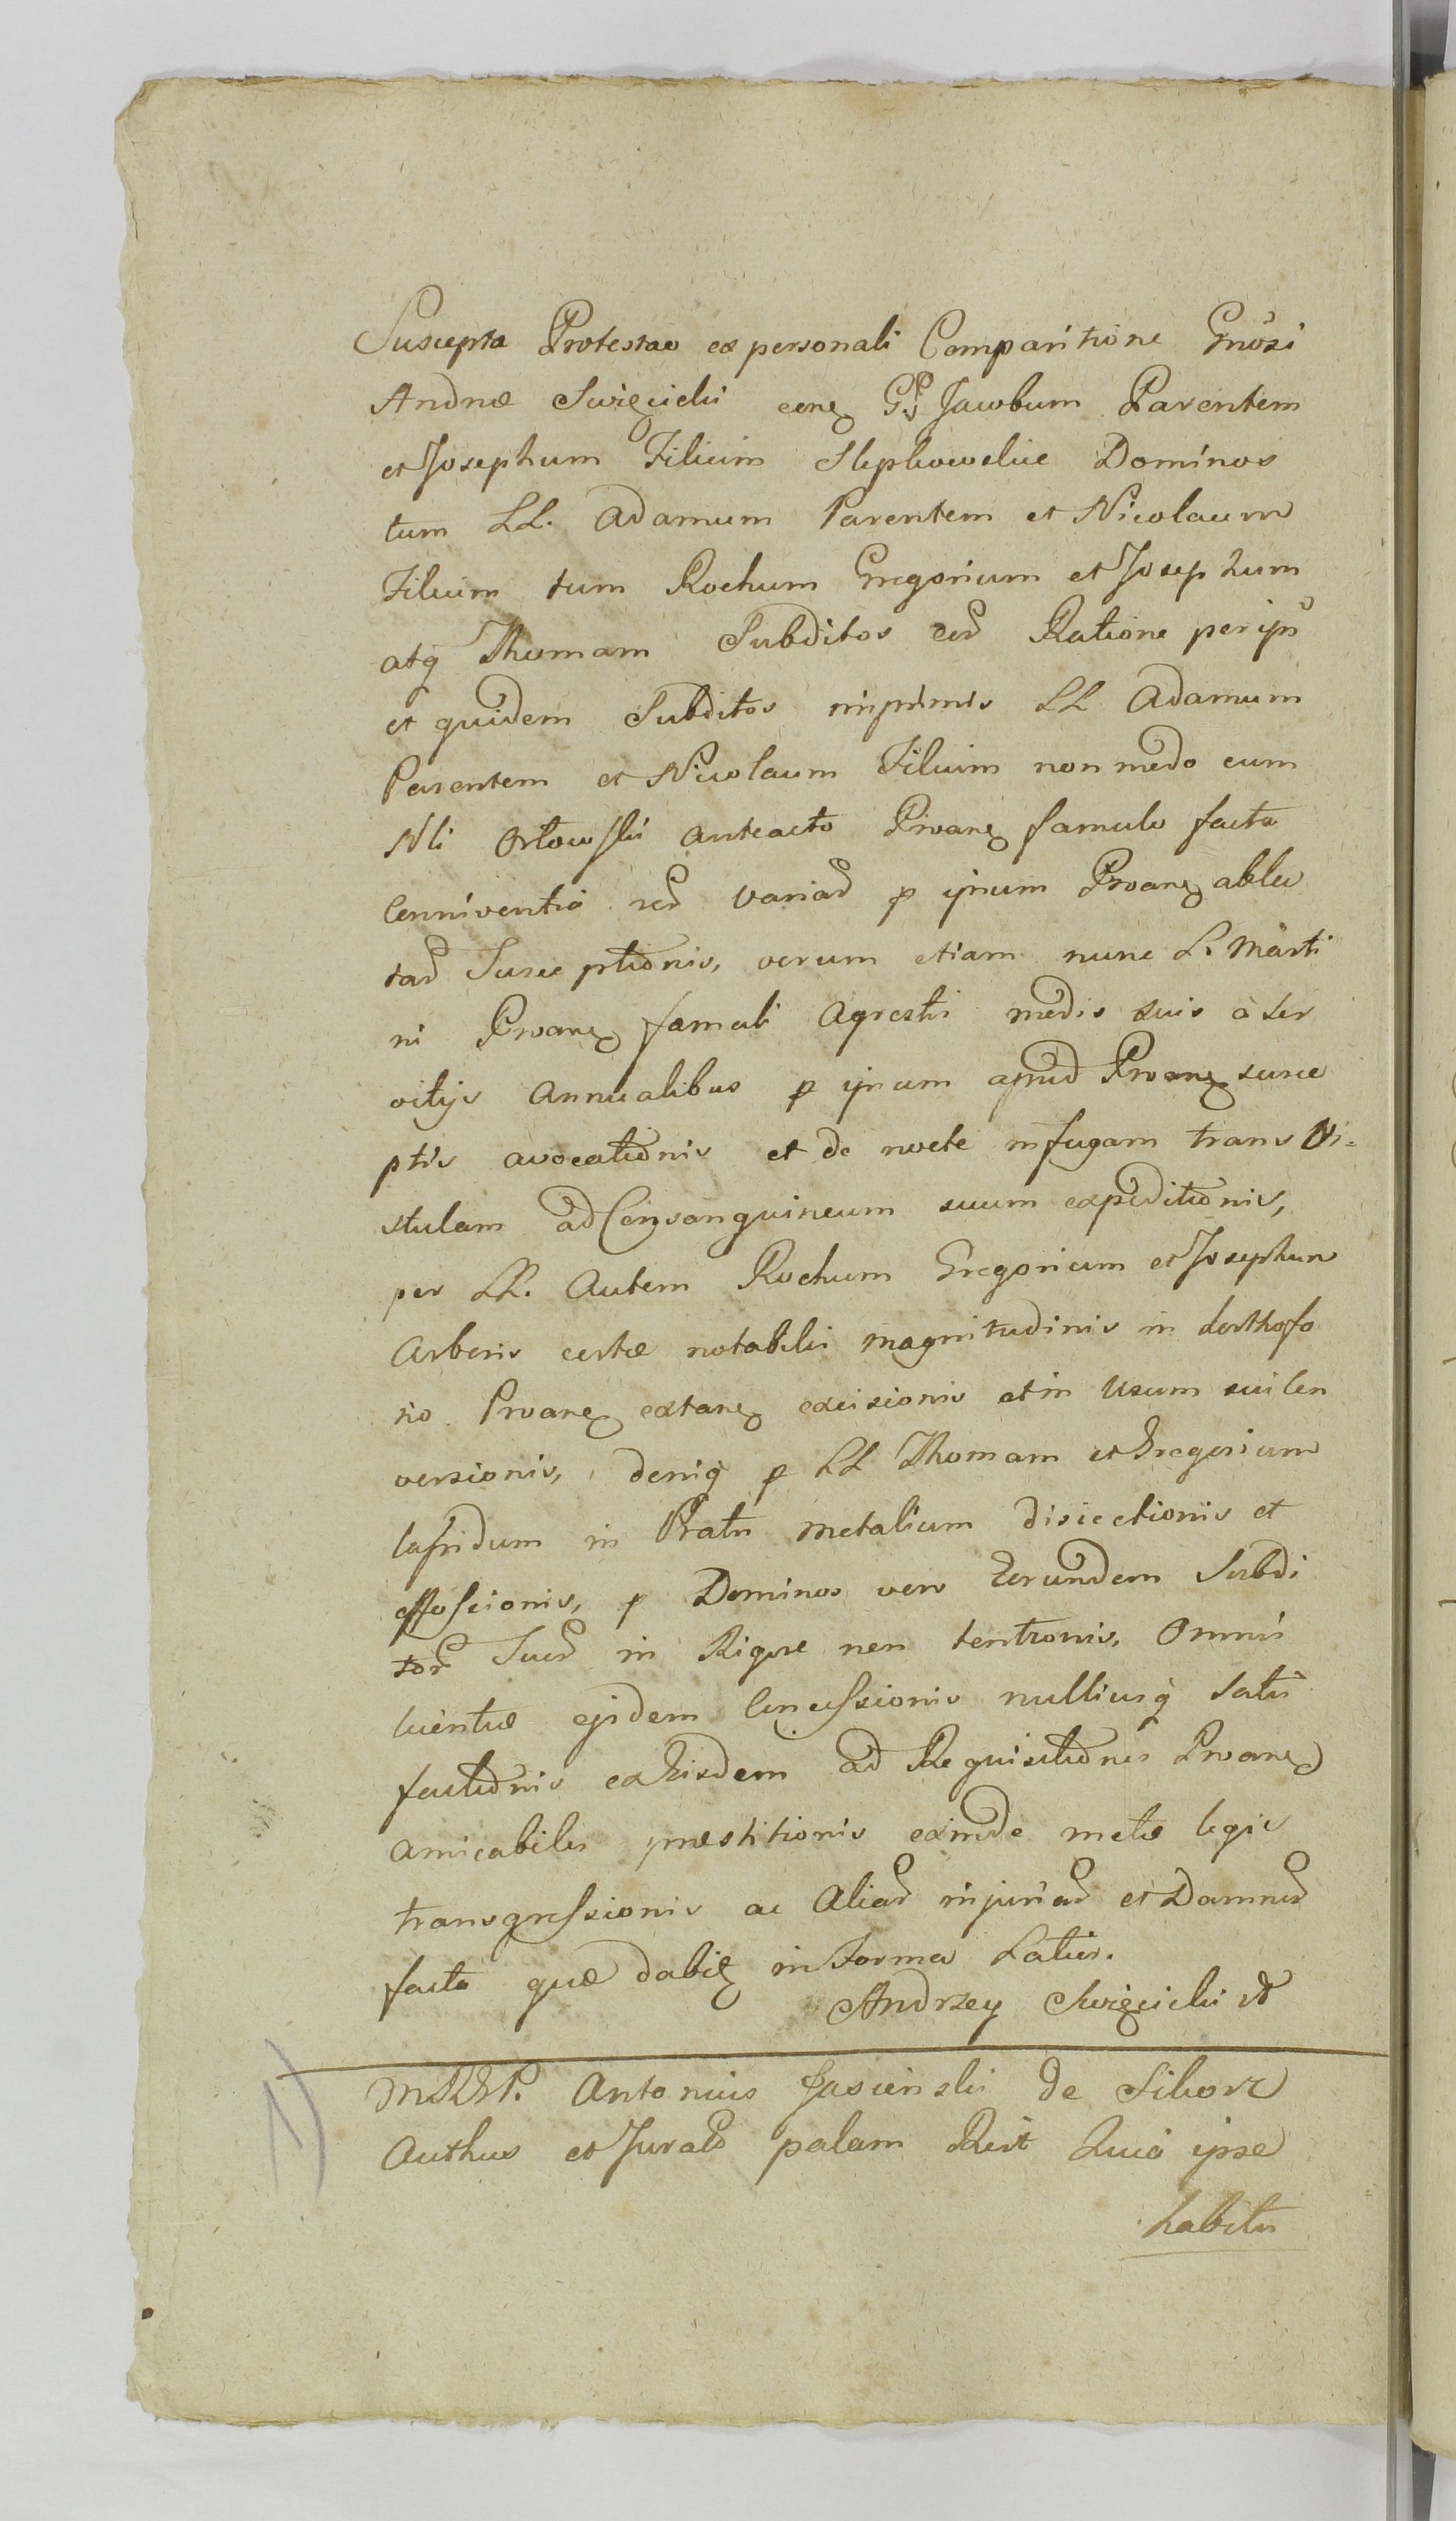 Suscepta Protestao ex personali Comparitione Gnosi
Andræ Swięcicki con̄ GG Jacobum Parentem
et Josephum Filium Slepkowskie Dominos
tum LL. Adamum Parentem et Nicolaum
Filium tum Rochum Gregorium et Josephum
atq Thomam Subditos eor Ratione per ipsos
et quidem Subditos inprimis LL Adamum
Parentem et Nicolaum Filium non modo cum
Nli Orłowski anteacto Proan̄ famulo facta
Conniventia rer variar p ipsum Proan̄ abla
tar Susceptionis, verum etiam nunc L. Marti
ni Proan̄ famuli Agrestis modis suis à ser
vitijs Annualibus p ipsum apud Proan̄ susce
ptis avocationis et de nocte in fugam trans Vi-
stulam ad Consanguineum suum expeditionis,
per LL. Autem Rochum Gregorium et Josephum
Arboris certæ notabilis magnitudinis in
Proan̄ extan̄ excisionis et in Usum sui Con
versionis, deniq p LL Thomam et Gregorium
lapidum in Prato metalium disiectionis et
effossionis, p Dominos vero Eorundem Subdi
tor Suor in Rigore non tentionis, Omni
licentiæ ejsdem Concessionis nulliusq Satis
factionis ex Eisdem ad Requisitiones Proan̄
amicabiles præstitionis exinde metæ legis
transgressionis ac Aliar injuriar et Damnor
facta quæ dabit in Forma Latius.
Andrzey Swięcicki
Antonius Jasienski de Sikorz
Authus et Jurats palam Rect Quia ipse
habita